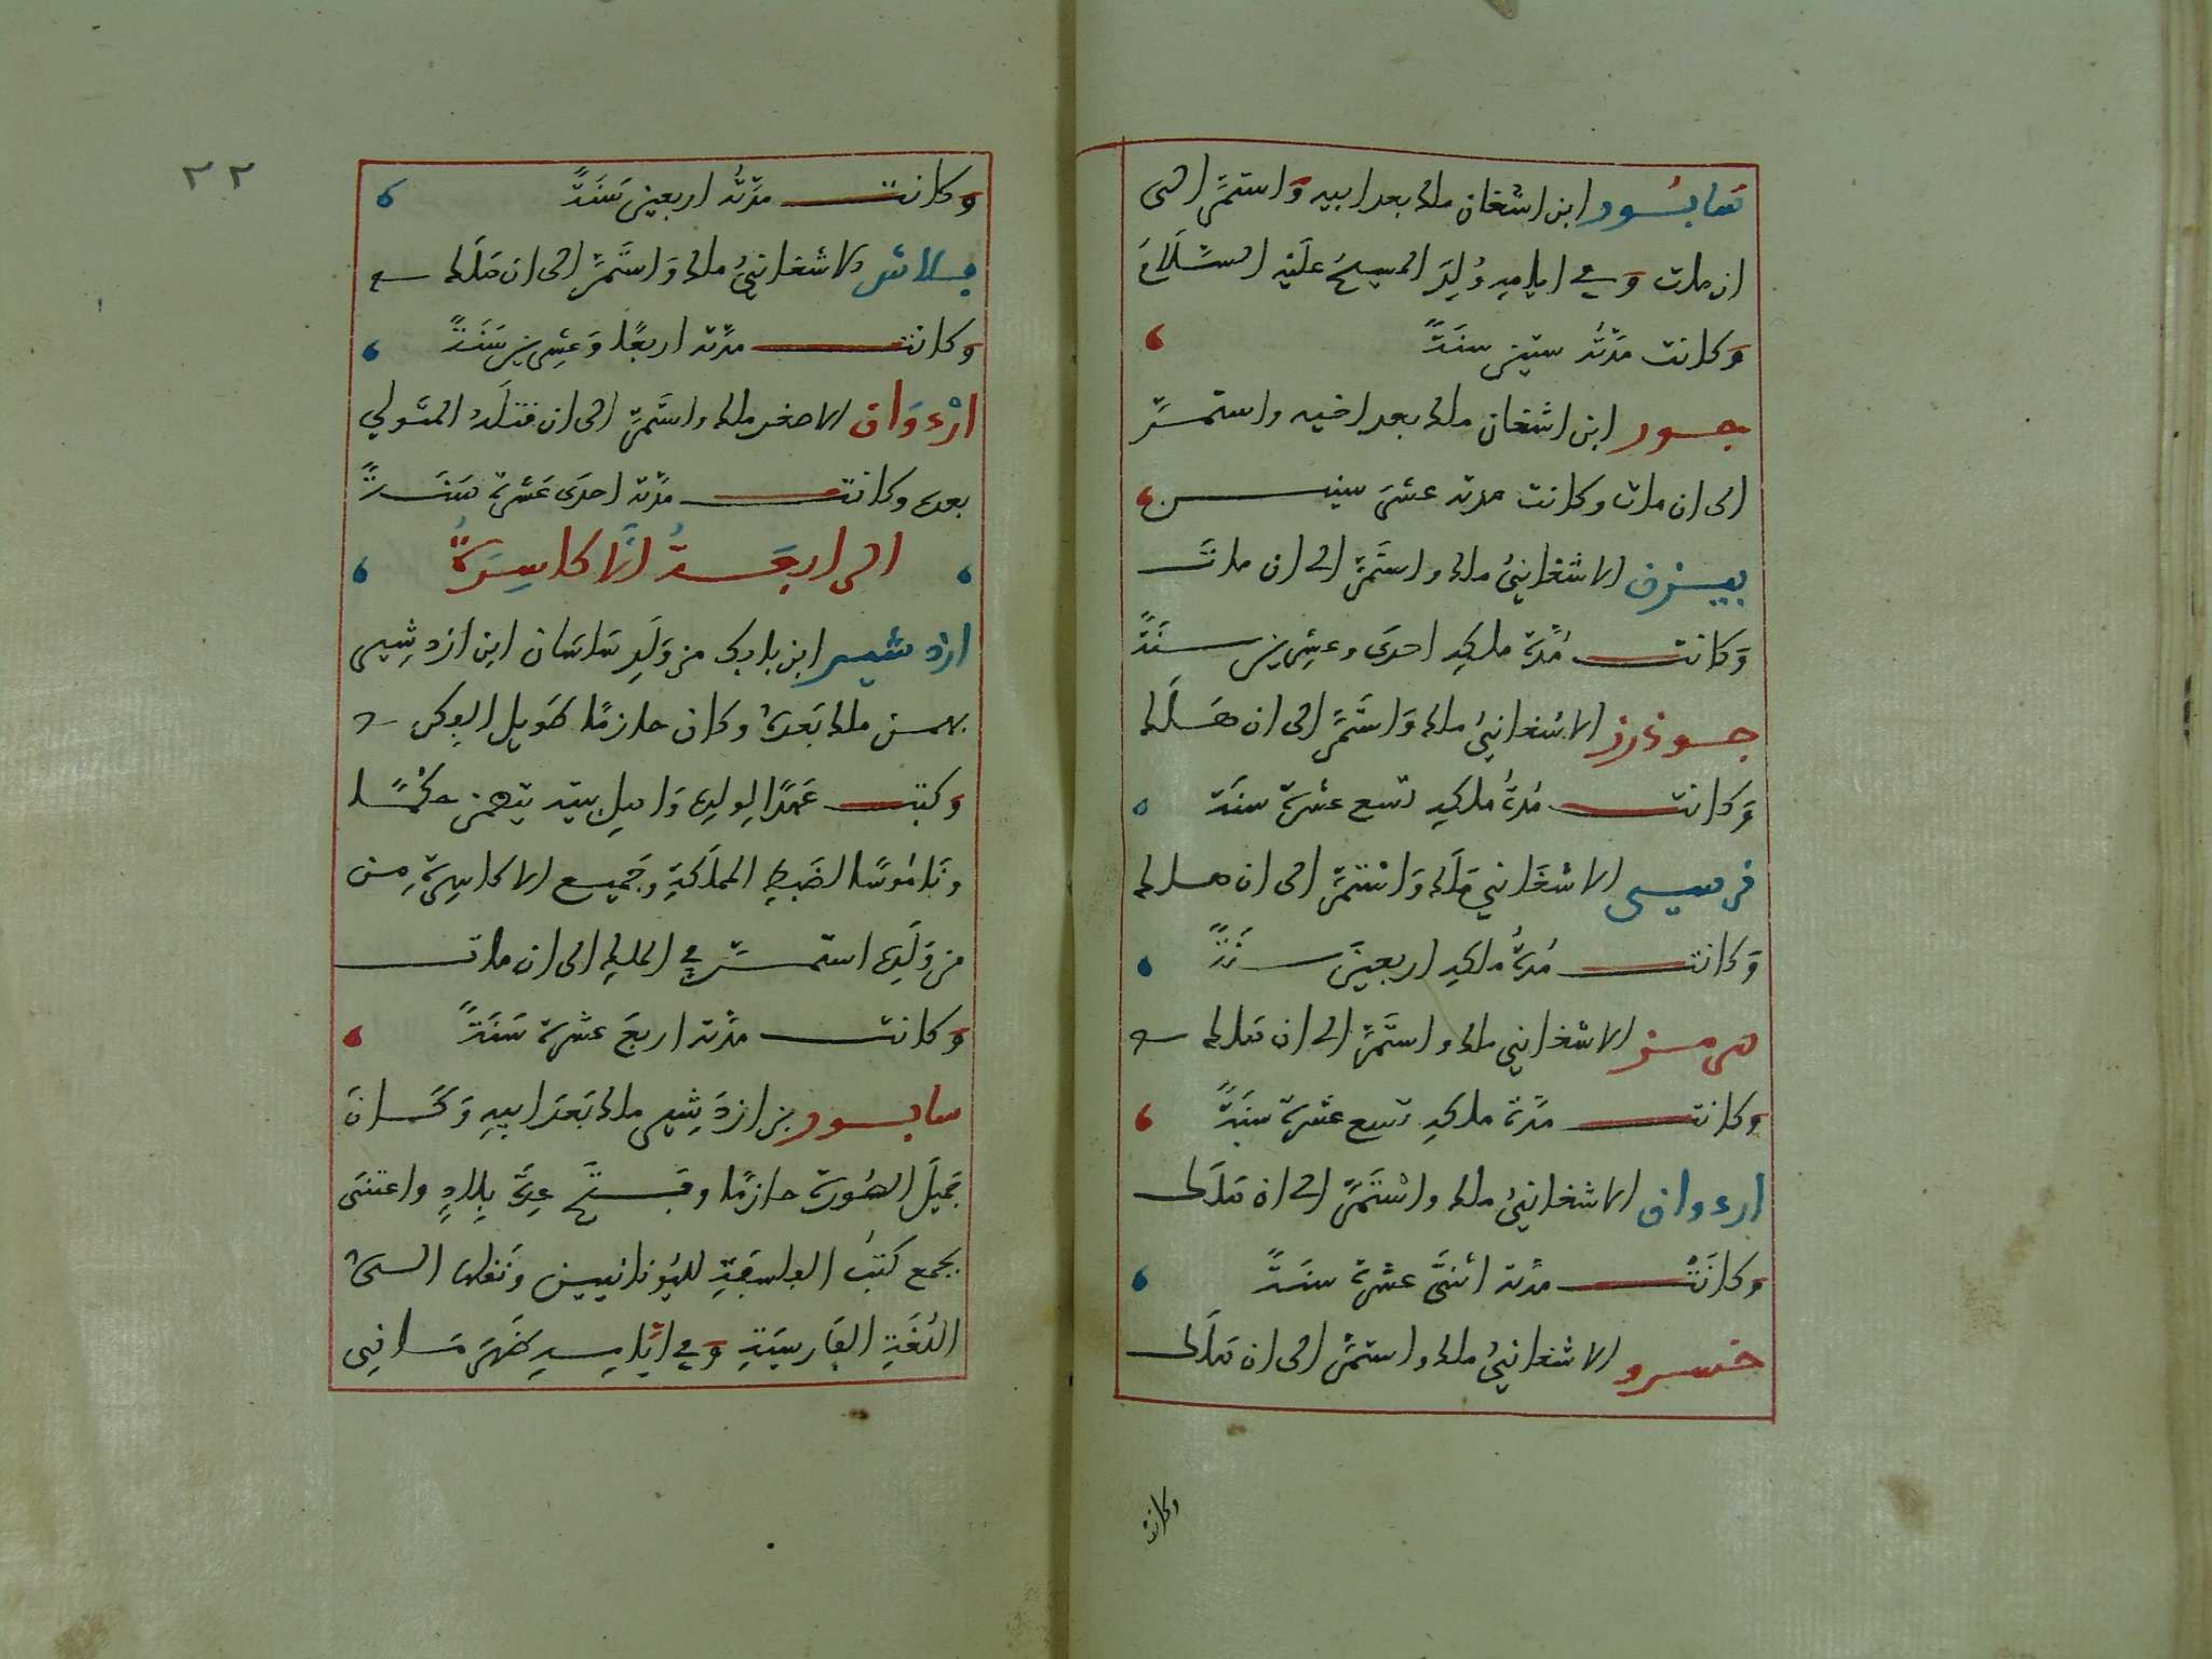 سابور ابن اشغان ملك بعد ابيه واستمر الى
ان مات وفي ايامه وُلِدَ المسيحُ عليه السَّلَامُ
وكانت مدّته ستين سنةً
جور ابن اشغان ملك بعد اخيه واستمرّ
الى ان مات وكانت مدته عشر سنين
بيزن الاشغانيُّ ملك واستمرّ الى ان مات
وكانت مُدّة ملكهِ احدى وعشرين سنةً
جوذرز الاشغانيُّ ملك واستمرّ الى ان هلك
وكانت مُدّةُ ملكهِ تسع عشرة سنة
نرسى الاشغاني مَلَك واستمرّ الى ان هلك
وكانت مُدّةُ ملكهِ اربعينَ سنةً
هرمز الاشغاني ملك واستمرّ الى ان هلك
وكانت مدّة ملكهِ تسع عشرة سنةً
اردوان الاشغانيُّ ملك واستمرّ الى ان هلك
وكانت مدّته اثنتى عشرة سنةً
خسرو الاشغانيُّ ملك واستمرّ الى ان هلك
وكانت
٢٢
وكانت مدّته اربعين سَنَةً
بلاش الاشغانيُّ ملك واستمرّ الى ان هَلَك
وكانت مدّته اربعًا وعشرين سَنَةً
ارْدَوان الاصغر ملك واستمرّ الى ان قتلَهُ المتولي
بعده وكانت مدّته احدى عَشرة سَنَةً
الرابعةُ الاكاسِرَةُ
ازدشير ابن بابك من وَلَدِ ساسان ابن ازدشير
بهمن ملك بَعْدَهُ وكان حازمًا طويل الفكر
وكتب عَهْدًا لولدِه وَاهل بيته يتضمن حكمًا
وناموسًا لضبطِ المملكةِ وجَميع الاكاسرةِ من
من وَلَدِه استمرّ في الملك الى ان مات
وكانت مدّته اربعَ عشرة سَنَةً
سابور بن ازدشير ملك بَعْدَ ابيهِ وَكَانَ
جميلَ الصُّورَة حازمًا وفتحَ عِدّةَ بِلادٍ واعتنى
بجمع كتبُ الفلسفةِ لليُونانيين ونَقْلِها الى
اللُغةِ الفارسيةِ وفي ايّامهِ ظهر مَانِي